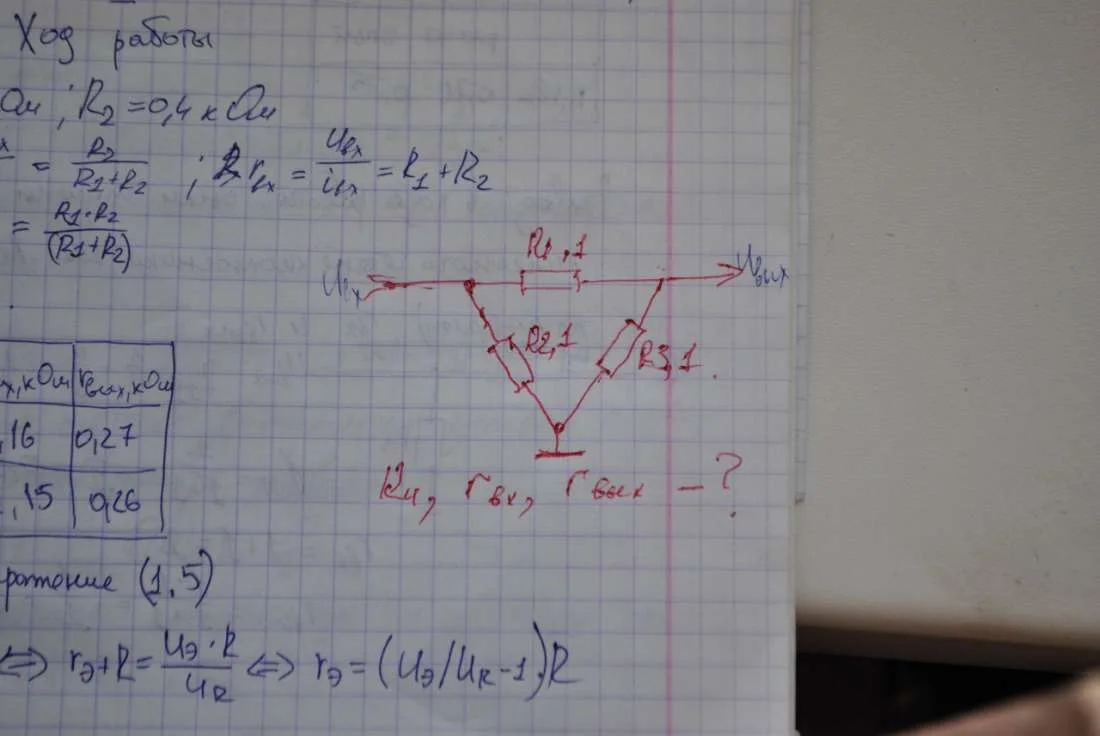 Ход работы
Ом ; R₂ = 0,4 кОм
= R₂/(R₁+R₂) ; rвх = Uвх/iвх = R₁ + R₂
= R₁·R₂/(R₁+R₂)
R1,1
Uвх
Uвых
R2,1
R3,1
х,кОм rвых,кОм
,16 0,27
,15 0,26
Kи, rвх, rвых – ?
ражение (1,5)
⇔ rэ+R = Uэ·R/UR ⇔ rэ = (Uэ/UR-1)·R